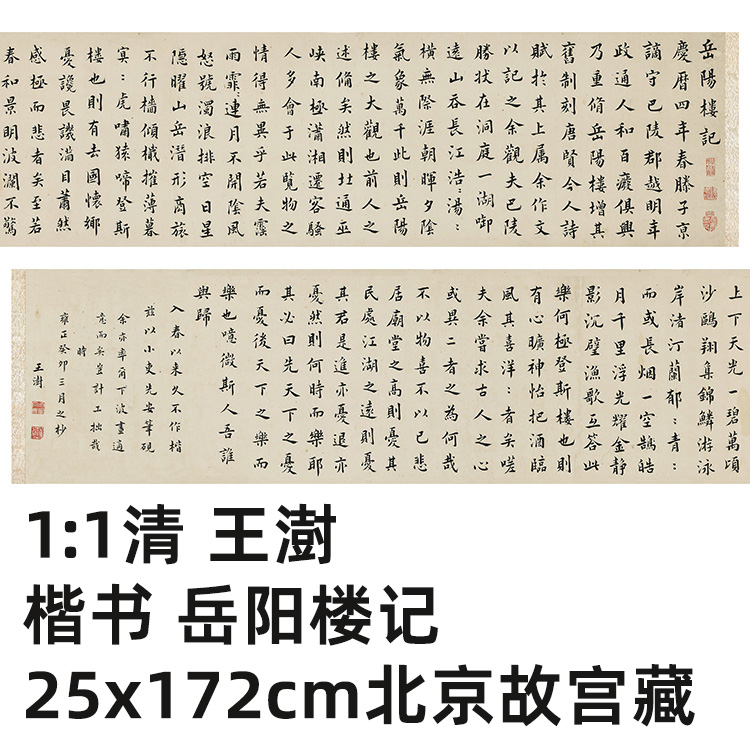 岳陽樓記
慶曆四年春滕子京
謫守巴陵郡越明年
政通人和百癈俱興
乃重脩岳陽樓增其
舊制刻唐賢今人詩
賦於其上属余作文
以記之余觀夫巴陵
勝狀在洞庭一湖啣
遠山吞長江浩:湯:
橫無際涯朝暉夕陰
氣象萬千此則岳陽
樓之大觀也前人之
述俻矣然則北通巫
峽南極瀟湘遷客騷
人多會于此覽物之
情得無異乎若夫霪
雨霏:連月不開陰風
怒號濁浪排空日星
隱曜山岳潛形商旅
不行檣傾檝摧薄暮
冥:虎嘯猿啼登斯
樓也則有去國懷鄉
憂讒畏譏滿目蕭然
感極而悲者矣至若
春和景明波瀾不驚
上下天光一碧萬頃
沙鷗翔集錦鱗游泳
岸渚汀蘭郁:青:
而或長烟一空皓
月千里浮光耀金静
影沉璧漁歌互答此
樂何極登斯樓也則
有心曠神怡把酒臨
風其喜洋:者矣嗟
夫余嘗求古人之心
或異二者之為何哉
不以物喜不以已悲
居廟堂之高則憂其
民處江湖之遠則憂
其君是進亦憂退亦
憂然則何時而樂耶
其必曰先天下之憂
而憂後天下之樂而
樂也噫微斯人吾誰
與歸
入春以來久不作楷
茲以小吏先安筆硯
余亦率爾下波畫適
意而矣豈計工拙哉
時
雍正癸卯三月之杪
王澍
1:1清 王澍
楷书 岳阳楼记
25x172cm北京故宫藏